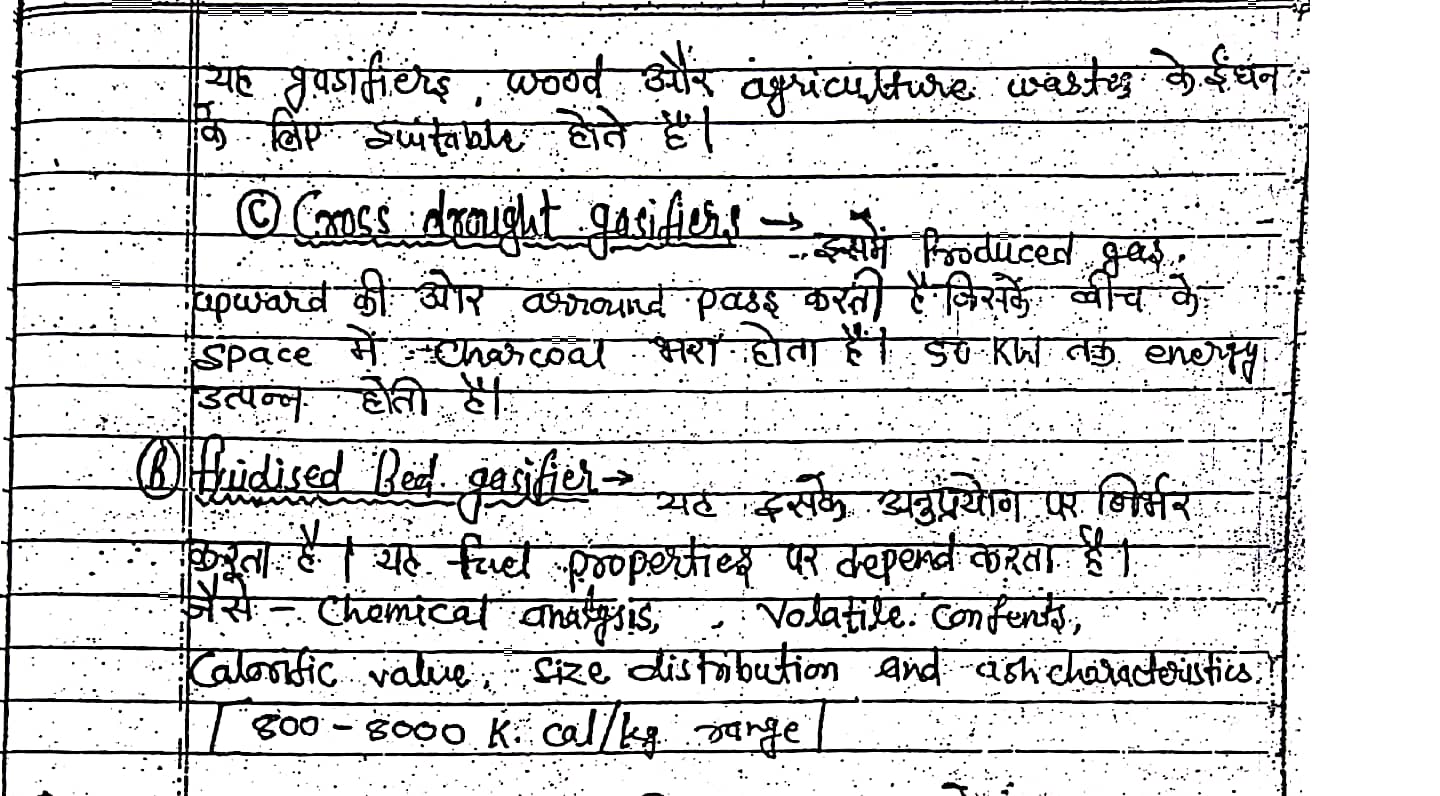 यह gasifiers, wood और agriculture wastes के ईंधन
के लिए suitable होते हैं।
Ⓒ Cross drought gasifiers →
इसमें Produced gas
upward की ओर arround pass करती है जिसके बीच के
space में charcoal भरा होता है। 50 KW तक energy
उत्पन्न होती है।
Ⓑ fluidised Bed gasifier →
यह इसके अनुप्रयोग पर निर्भर
करता है। यह fuel properties पर depend करता है।
जैसे – Chemical analysis, Volatile contents,
Calorific value, size distribution and ash characteristics.
800 – 8000 K. cal/kg range